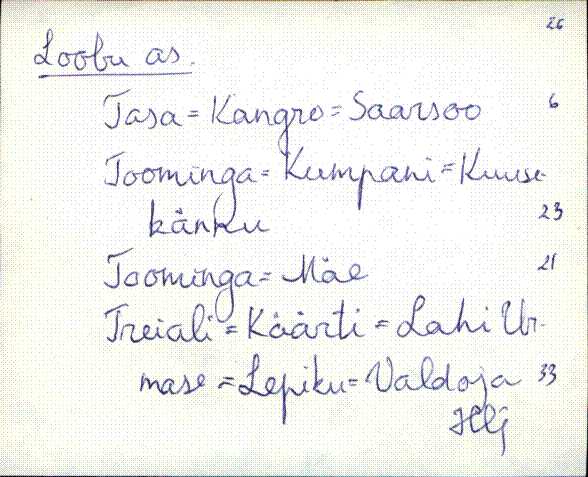 26
Loobu as.
Tasa = Kangro = Saarsoo 6
Toominga = Kumpani = Kuuse-
känku 23
Toominga = Mäe 21
Treiali = Käärti = Lahi Ur-
mase = Lepiku = Valdoja 33
Hlj